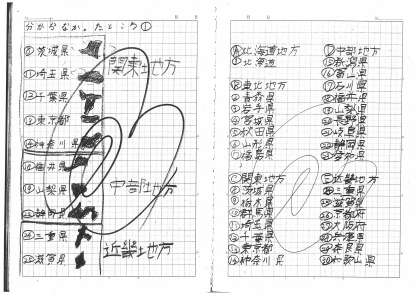 分からなかったところ①
⑧茨城県
⑪埼玉県
⑫千葉県
⑬東京都
⑭神奈川県
関東地方
福井県
山梨県
静岡県
中部地方
三重県
滋賀県
近畿地方
Ⓐ北海道地方
①北海道
Ⓑ東北地方
②青森県
③岩手県
④宮城県
⑤秋田県
⑥山形県
⑦福島県
Ⓒ関東地方
⑧茨城県
⑨栃木県
⑩群馬県
⑪埼玉県
⑫千葉県
⑬東京都
⑭神奈川県
Ⓓ中部地方
⑮新潟県
⑯富山県
⑰石川県
⑱福井県
⑲山梨県
⑳長野県
岐阜県
静岡県
愛知県
Ⓔ近畿地方
三重県
滋賀県
京都府
大阪府
兵庫県
奈良県
和歌山県